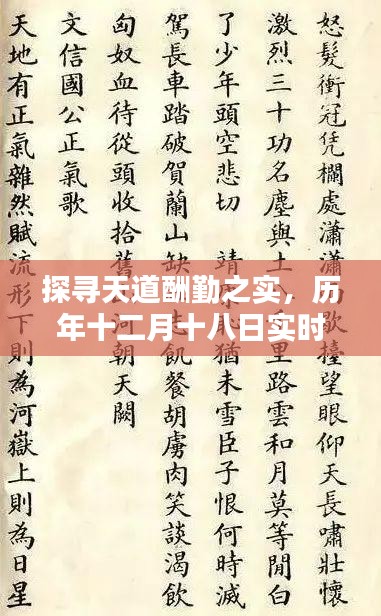 怒髮衝冠凭欄處瀟瀟歇擡望眼仰天長嘯壯懷
激烈三十功名塵與土里路雲和月莫等閒白
了少年頭空悲切 靖猶未雪臣子恨何時滅
駕長車踏破賀蘭山缺飢餐胡虜肉笑談渴飲
匈奴血待從頭收拾舊河朝天闕
文信國公正氣歌
天地有正氣雜然賦流形下則為河嶽上則為日星
探寻天道酬勤之实，历
年十二月十八日实时